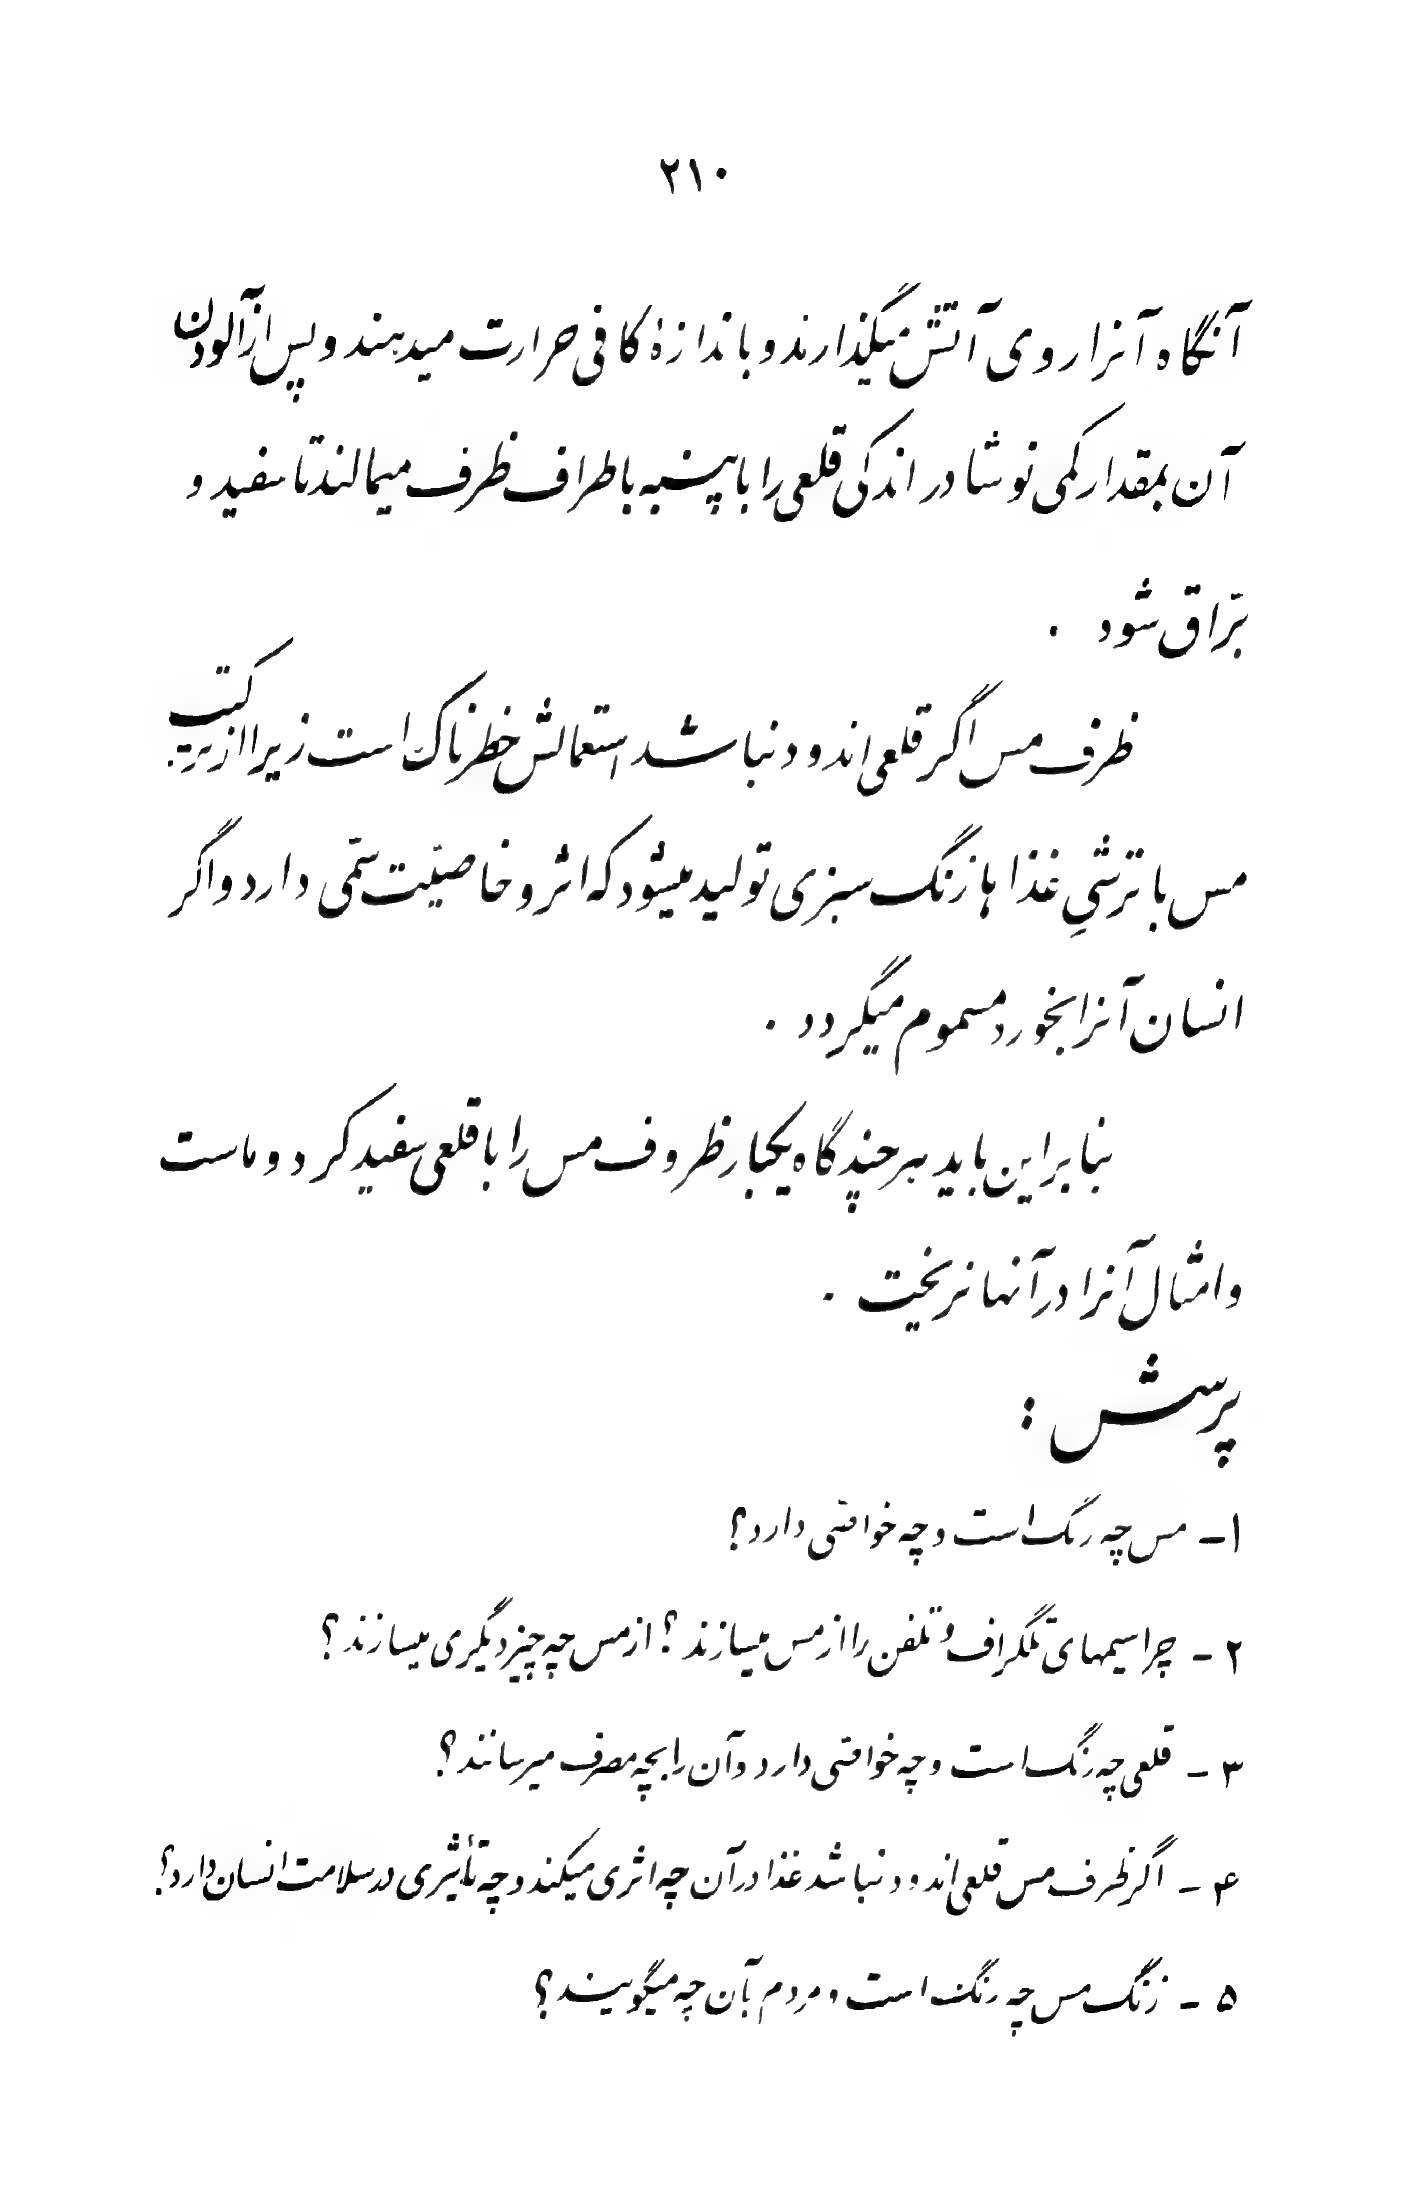 ۲۱۰
آنگاه آنرا روی آتش میگذارند و باندازهٔ کافی حرارت میدهند و پس از آلودن
آن بمقدار کمی نوشادر اندکی قلعی را با پنبه باطراف ظرف میمالند تا سفید و
برّاق شود .
ظرف مس اگر قلعی اندود نباشد استعمالش خطرناک است زیرا از ترکیب
مس با ترشیِ غذاها زنگ سبزی تولید میشود که اثر و خاصیّت سمّی دارد و اگر
انسان آنرا بخورد مسموم میگردد .
بنابراین باید هر چند گاه یکبار ظروف مس را با قلعی سفید کرد و ماست
و امثال آنرا در آنها نریخت .
پرسش :
۱- مس چه رنگ است و چه خواصّی دارد؟
۲- چرا سیمهای تلگراف و تلفن را از مس میسازند ؟ از مس چه چیز دیگری میسازند ؟
۳- قلعی چه رنگ است و چه خواصّی دارد و آن را بچه مصرف میرسانند ؟
۴- اگر ظرف مس قلعی اندود نباشد غذا در آن چه اثری میکند و چه تأثیری در سلامت انسان دارد؟
۵- زنگ مس چه رنگ است و مردم بآن چه میگویند ؟